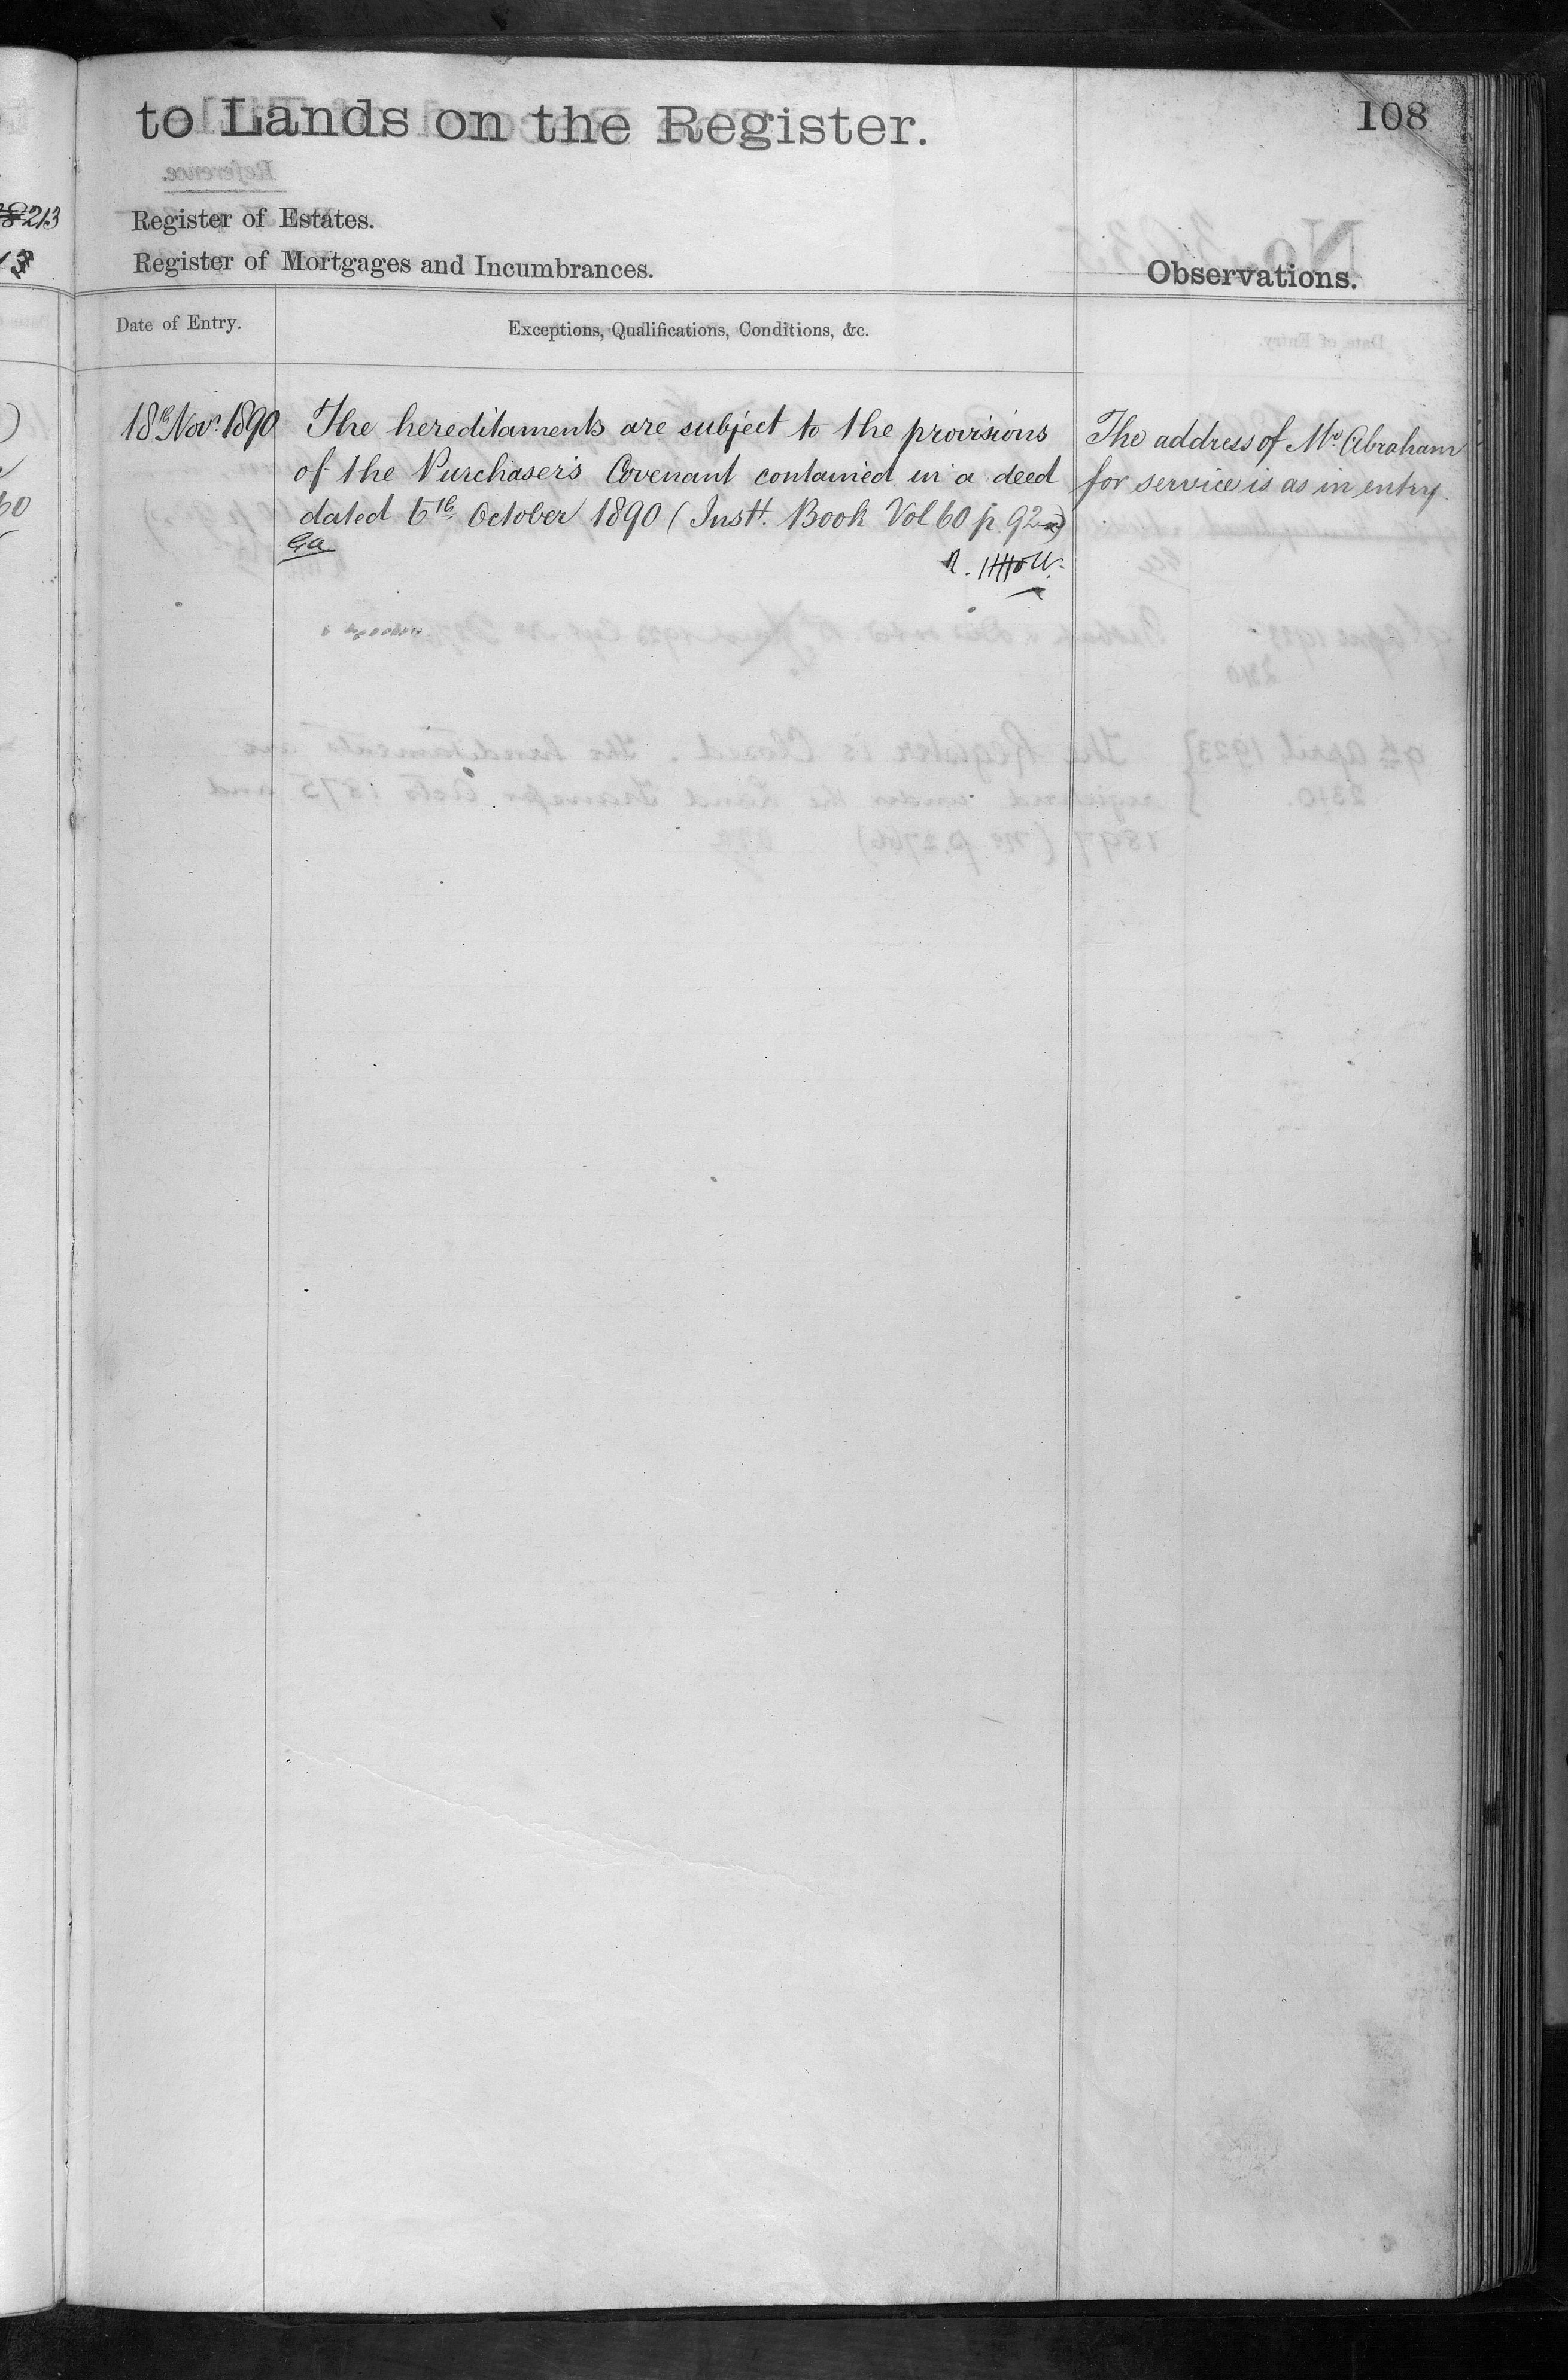 to Lands on the Register.
108
213
Register of Estates.
Register of Mortgages and Incumbrances.
Observations.
Date of Entry.
Exceptions, Qualifications, Conditions, &c.
18th Novr. 1890
The hereditaments are subject to the provisions
of the Purchaser's Covenant contained in a deed
dated 6th October 1890 (Instt. Book Vol 60 p. 92)
The address of Mr. Abraham
for service is as in entry.
60